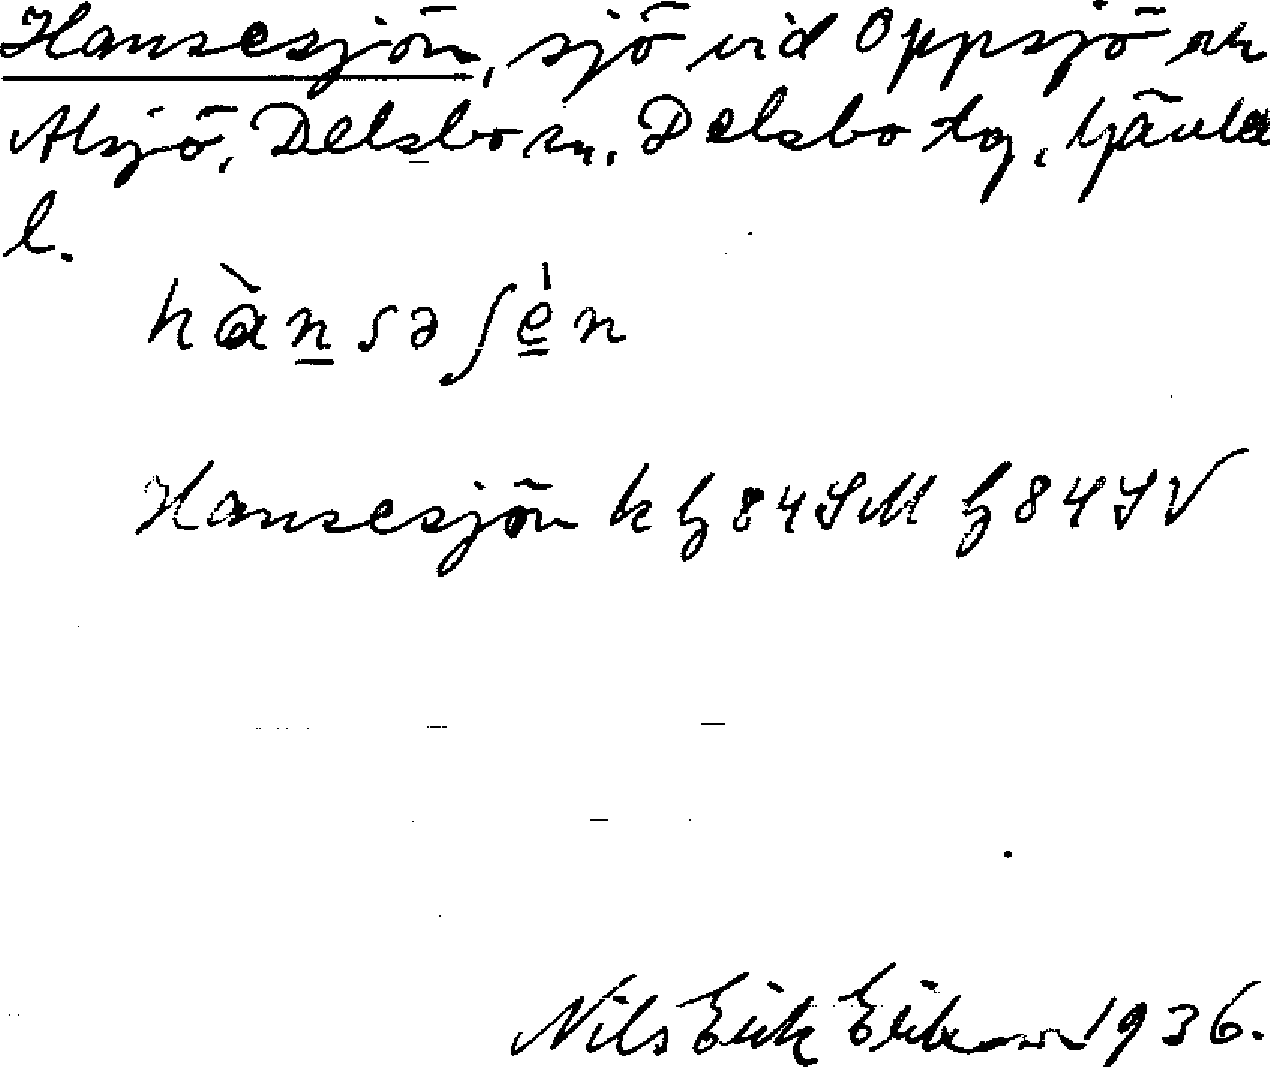 Hansesjön, sjö vid Oppsjö och
Alsjö, Delsbo sn, Delsbo tg, Gävle
l.
hànsəʃe̳̍n
Hansesjön k 84 SM 84 SV
Nils Erik Eriksson 1936.